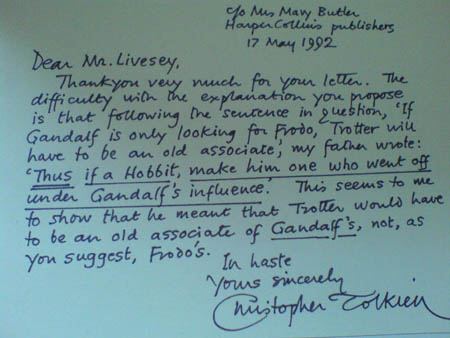 c/o Mrs Mary Butler
HarperCollins publishers
17 May 1992
Dear Mr. Livesey,
Thankyou very much for your letter. The
difficulty with the explanation you propose
is that following the sentence in question, 'If
Gandalf is only looking for Frodo, Trotter will
have to be an old associate', my father wrote:
'Thus if a Hobbit, make him one who went off
under Gandalf's influence.' This seems to me
to show that he meant that Trotter would have
to be an old associate of Gandalf's, not, as
you suggest, Frodo's.
In haste
Yours sincerely
Christopher Tolkien